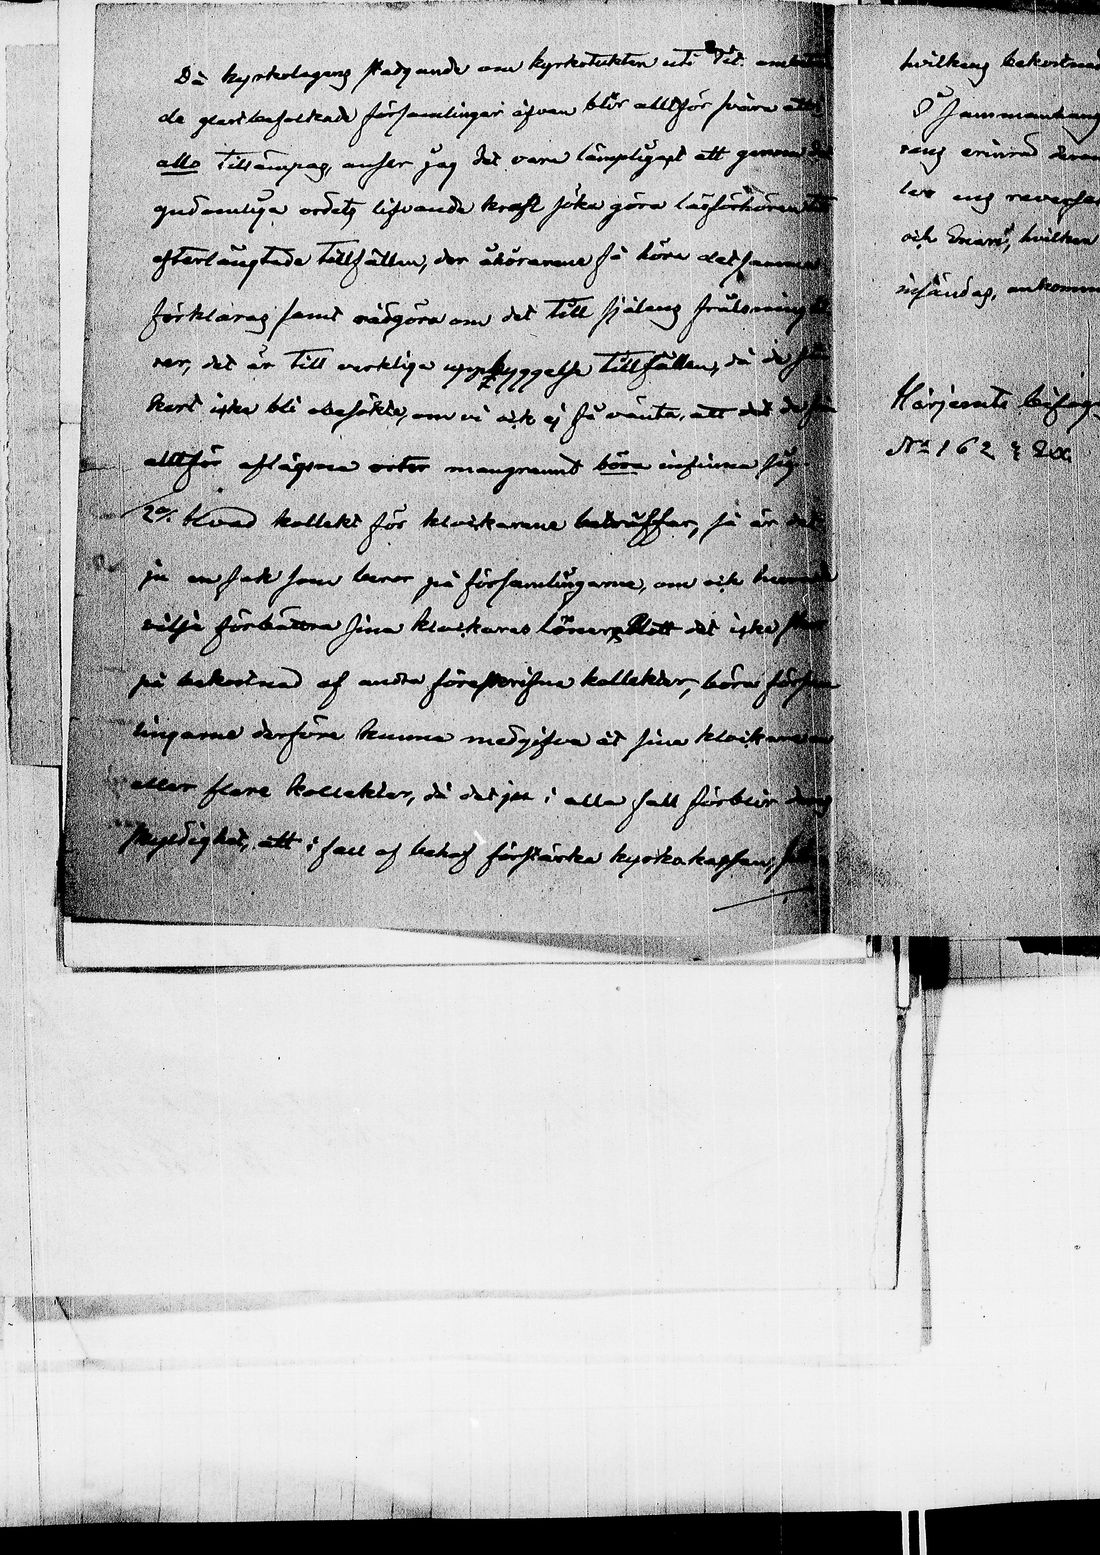 Då kyrkolagens stadgande om kyrkotukten uti
de glest befolkade församlingar äfven blir alltför svåra att
allo tillämpas, anser jag det vara lämpligast att genom det
gudomliga ordets lifvande kraft söka göra läsförhören till
efterlängtade tillfällen, der åhörarene få höra detsamma
förklaras samt rådgöra om det till själens frälsning
rer, det är till verkliga uppbyggelse tillfällen, då de
kert icke bli obesökte, om vi ock ej få vänta, att det de från
alltför aflägsna orter mangrannt böra infinna sig.
2o/. Hvad kollekt för klockarene beträffar, så är det
ju en sak som beror på församlingarne, om och huruvida
vilja förbättra sina klockares löner. Blott det icke sker
på bekostnad af andra föreskrifna kollekter, böra försam
lingarne derföre kunna medgifva åt sina klockare en
eller flere kollekter, då det ju i alla fall förblir deras
skyldighet, att i fall af behof förstärka kyrkokassan,
hvilkens bekostnad
I sammanhang
rens erinra deras
lers
och hvilken
insändas, ankomm
Härjemte bifog
No 162